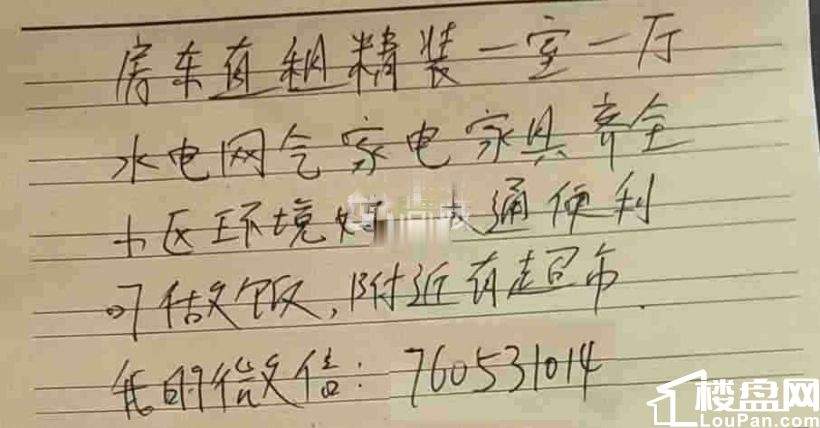 房东直租精装一室一厅
水电网气家电家具齐全
小区环境好 交通便利
可做饭,附近有超市.
我的微信: 760531014
楼盘网
LouPan.com